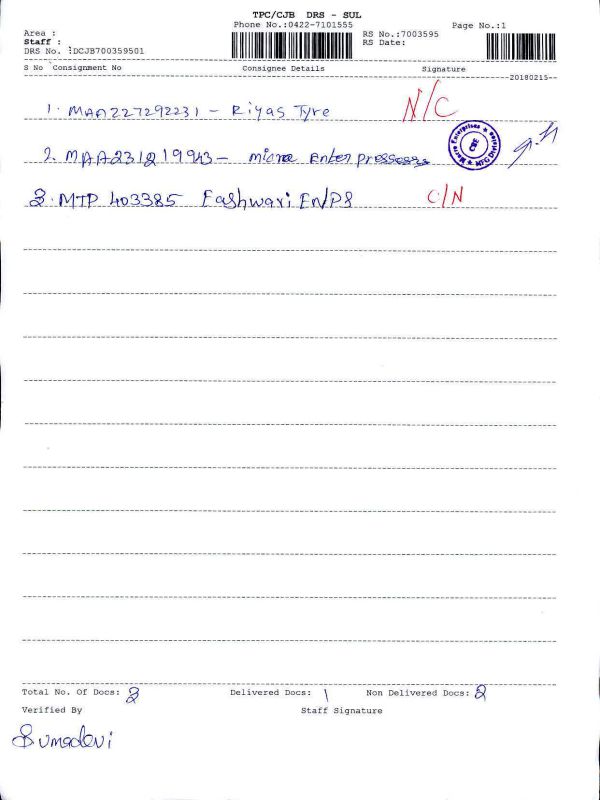 TPC/CJB DRS - SUL
Phone No.:0422-7101555
Page No.:1
Area :
RS No.:7003595
Staff :
RS Date:
DRS No. :DCJB700359501
S No Consignment No Consignee Details Signature
20180215
1. MAA227292231 - Riyas Tyre N/C
2. MAA231219943 - micro Enter
3. MTP 403385 Eashwari EN/PS C/N
Total No. Of Docs: 3 Delivered Docs: 1 Non Delivered Docs: 2
Verified By Staff Signature
Sumadevi